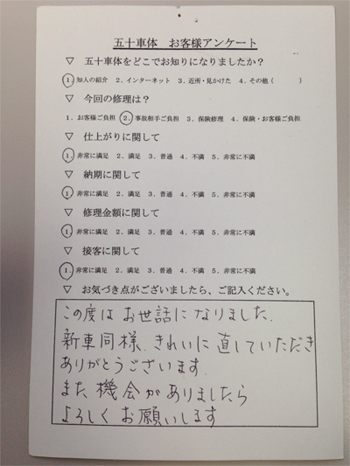 五十車体　お客様アンケート
▽　五十車体をどこでお知りになりましたか？
1．知人の紹介　2．インターネット　3．近所・見かけた　4．その他（　　　）
▽　今回の修理は？
1．お客様ご負担　2．事故相手ご負担　3．保険修理　4．保険・お客様ご負担
▽　仕上がりに関して
1．非常に満足　2．満足　3．普通　4．不満　5．非常に不満
▽　納期に関して
1．非常に満足　2．満足　3．普通　4．不満　5．非常に不満
▽　修理金額に関して
1．非常に満足　2．満足　3．普通　4．不満　5．非常に不満
▽　接客に関して
1．非常に満足　2．満足　3．普通　4．不満　5．非常に不満
▽　お気づき点がございましたら、ご記入ください。
この度は お世話に なりました．
新車同様．きれいに 直していただき
ありがとうございます．
また 機会が ありましたら
よろしく お願いします